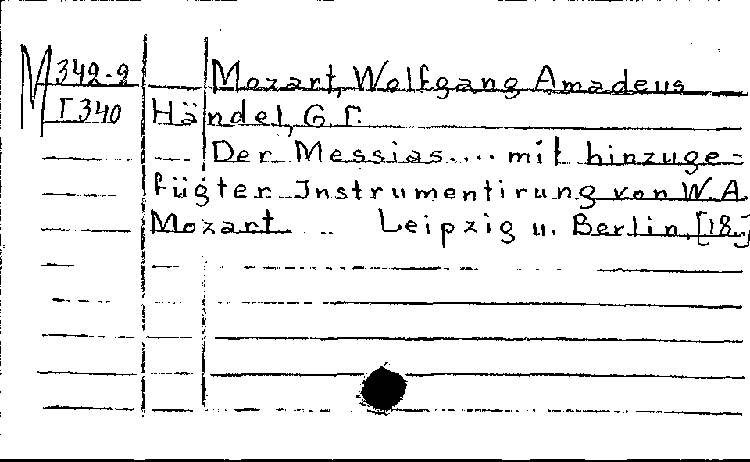 M 342-2 Mozart, Wolfgang Amadeus
F 340 Händel, G. F.
Der Messias.... mit hinzuge-
fügter Instrumentirung von W. A.
Mozart ... Leipzig u. Berlin, [18..]